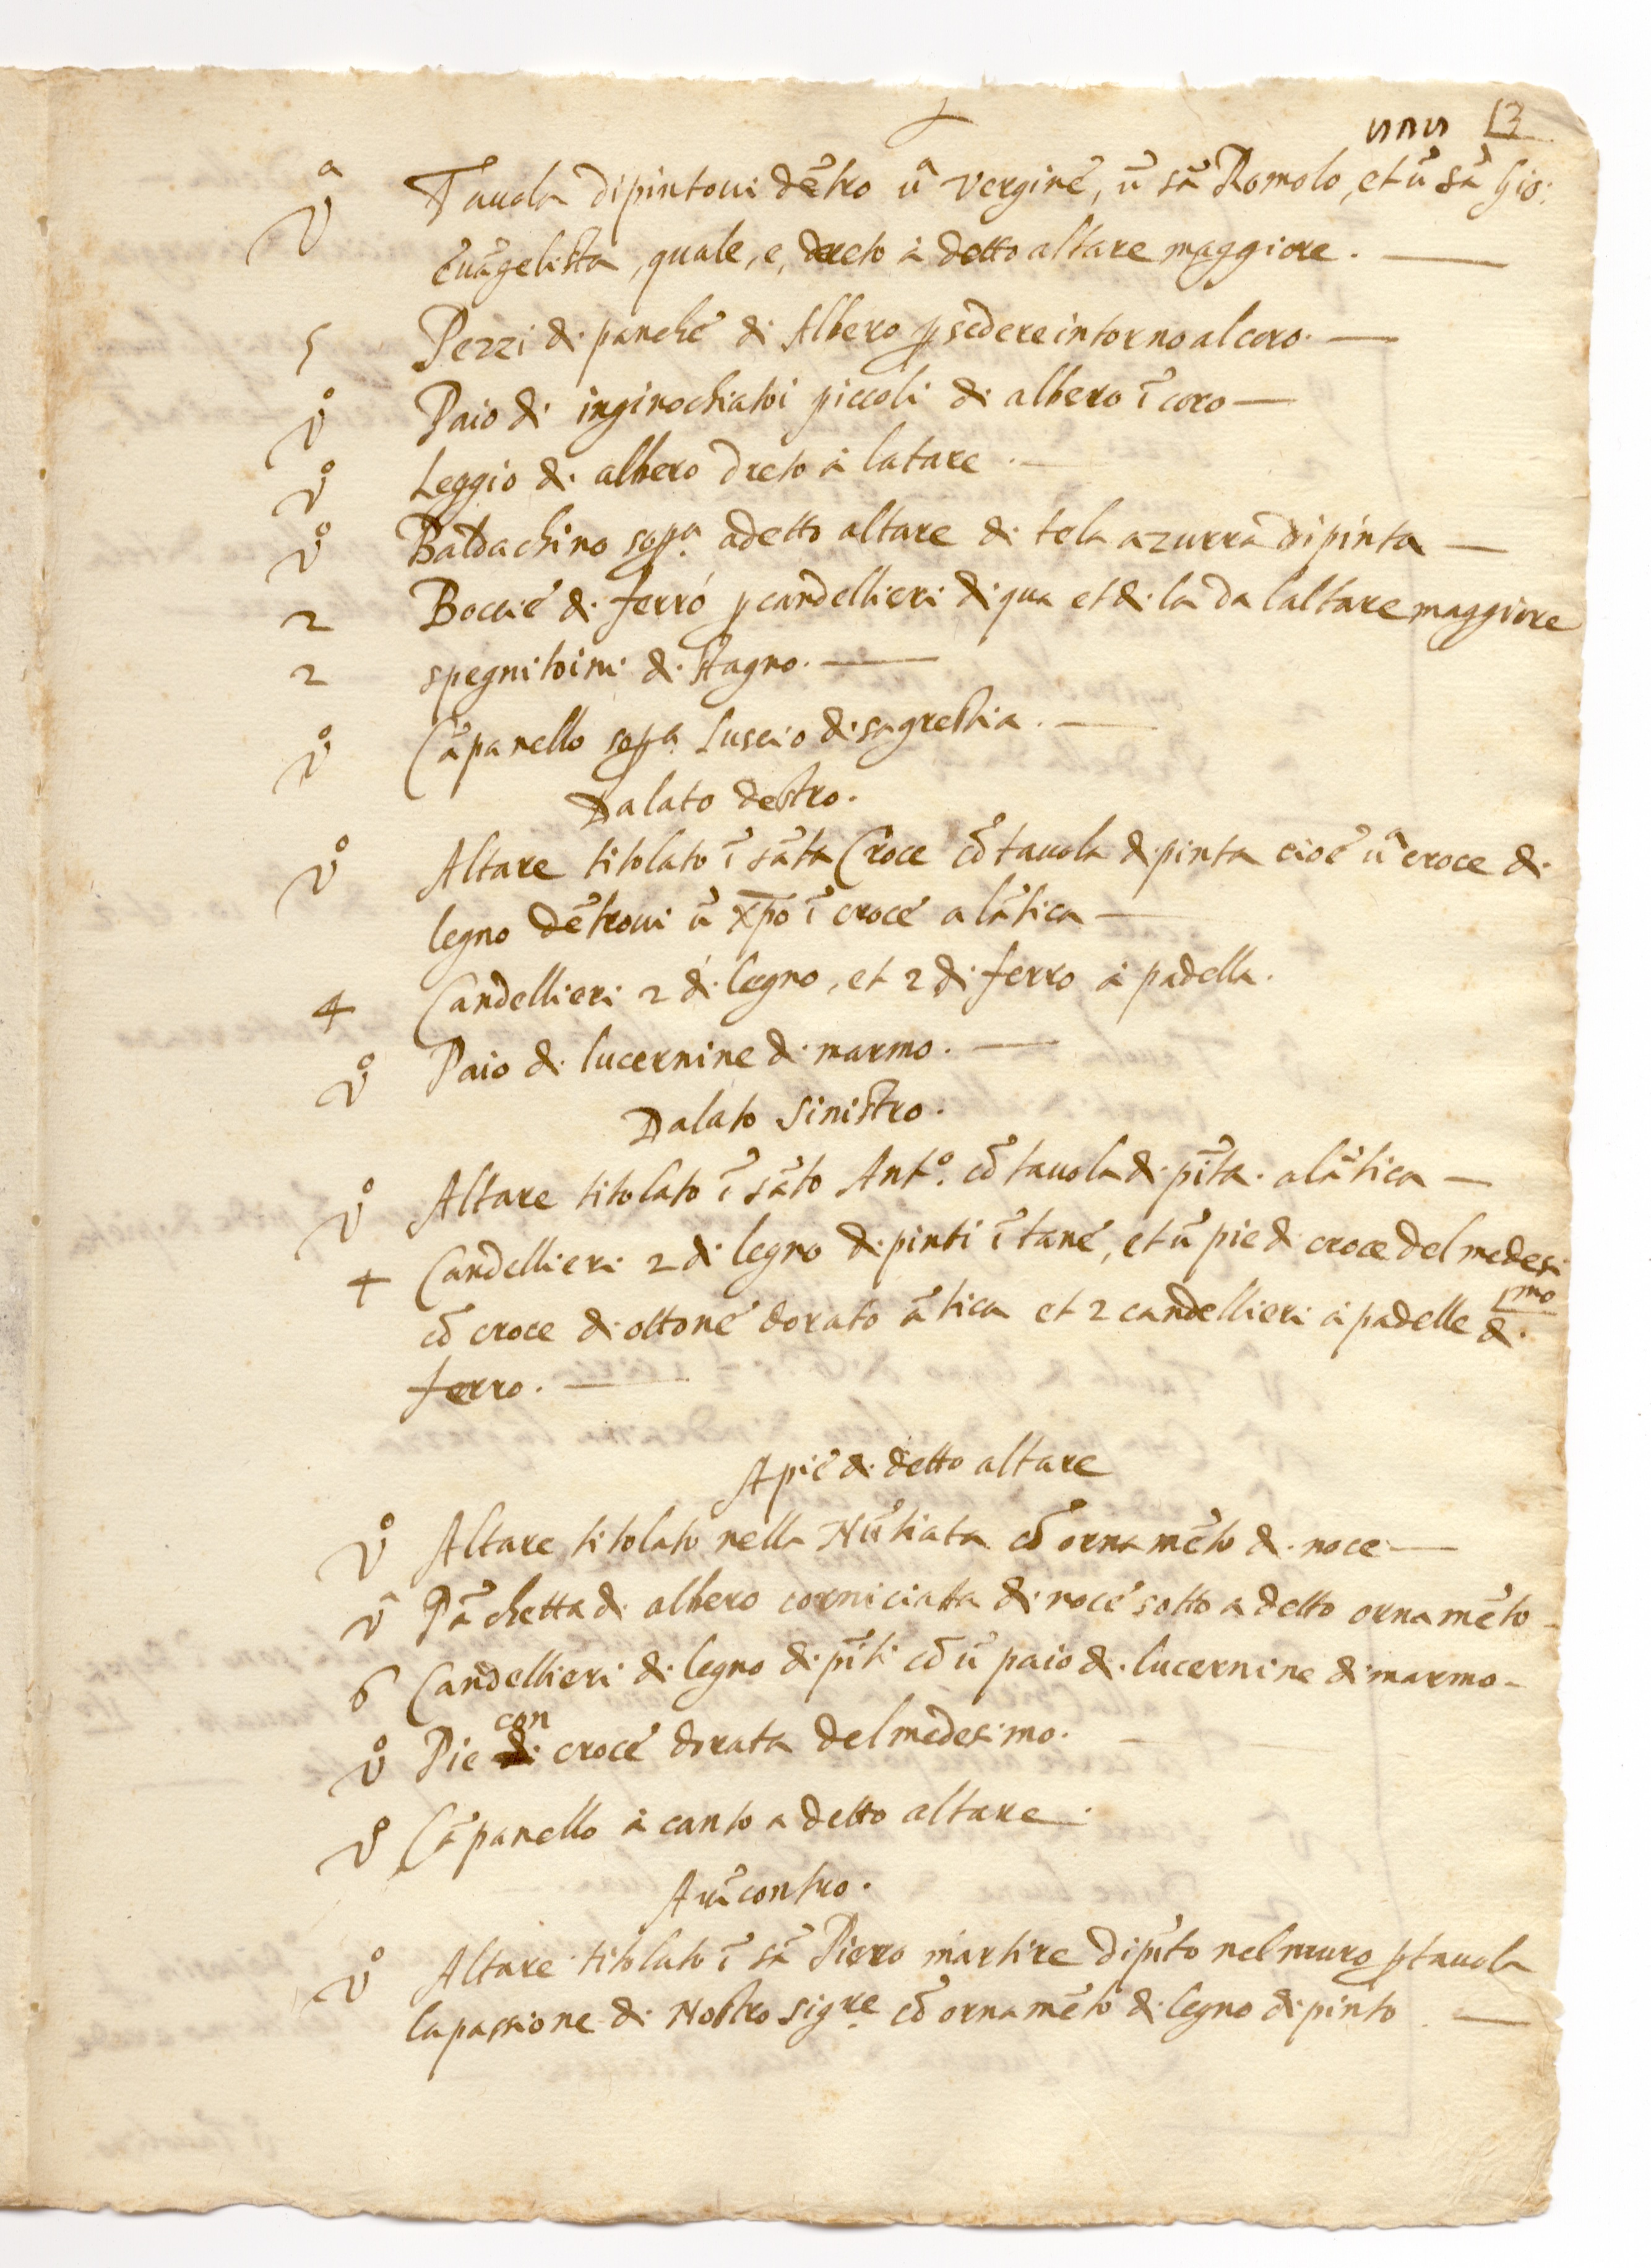 13
ũª Tauola dipintoui dẽtro ũª vergine, ũ sã Romolo, et ũ sã Gio:
euãgelista, quale, e, dreto à detto altare maggiore. —
5 Pezzi di panche di Albero p sedere intorno al coro. —
ũº Paio di inginochiatoi piccoli di albero ĩ coro —
ũº Leggio di albero dreto à latare. —
ũº Baldachino sopª. adetto altare di tela azurra dipinta —
2 Boccie di ferro p candellieri di qua et di la da laltare maggiore
2 spegnitoini di stagno. —
ũº Cãpanello sopª. luscio di sagrestia. —
Dalato destro.
ũº Altare titolato ĩ sãta Croce cõ tauola dipinta cioè ũª croce di
legno dẽtroui ũ xp̃o ĩ croce alãtica —
4 Candellieri 2 di legno, et 2 di ferro à padella.
ũº Paio di lucernine di marmo. —
Dalato sinistro.
ũº Altare titolato ĩ sãto Antº. cõ tauola di pĩta. alãtica —
4 Candellieri 2 di legno dipinti ĩ tane, et ũ pie di croce del medesi
mo
cõ croce di ottone dorato ãtica et 2 candellieri à padelle di
ferro. —
Apie di detto altare
ũº Altare titolato nella Nũtiata cõ ornamẽto di noce —
ũª Pãchetta di albero corniciatta di noce sotto a detto ornamẽto —
6 Candellieri di legno di pĩti cõ ũ paio di lucernine di marmo —
con
ũº Pie di croce dorata del medesimo. —
ũº Cãpanello à canto a detto altare.
A rĩcontro.
ũº Altare titolato ĩ sã Piero martire dipĩto nel muro p tauola
la passione di Nostro sigre. cõ ornamẽto di legno dipinto. —